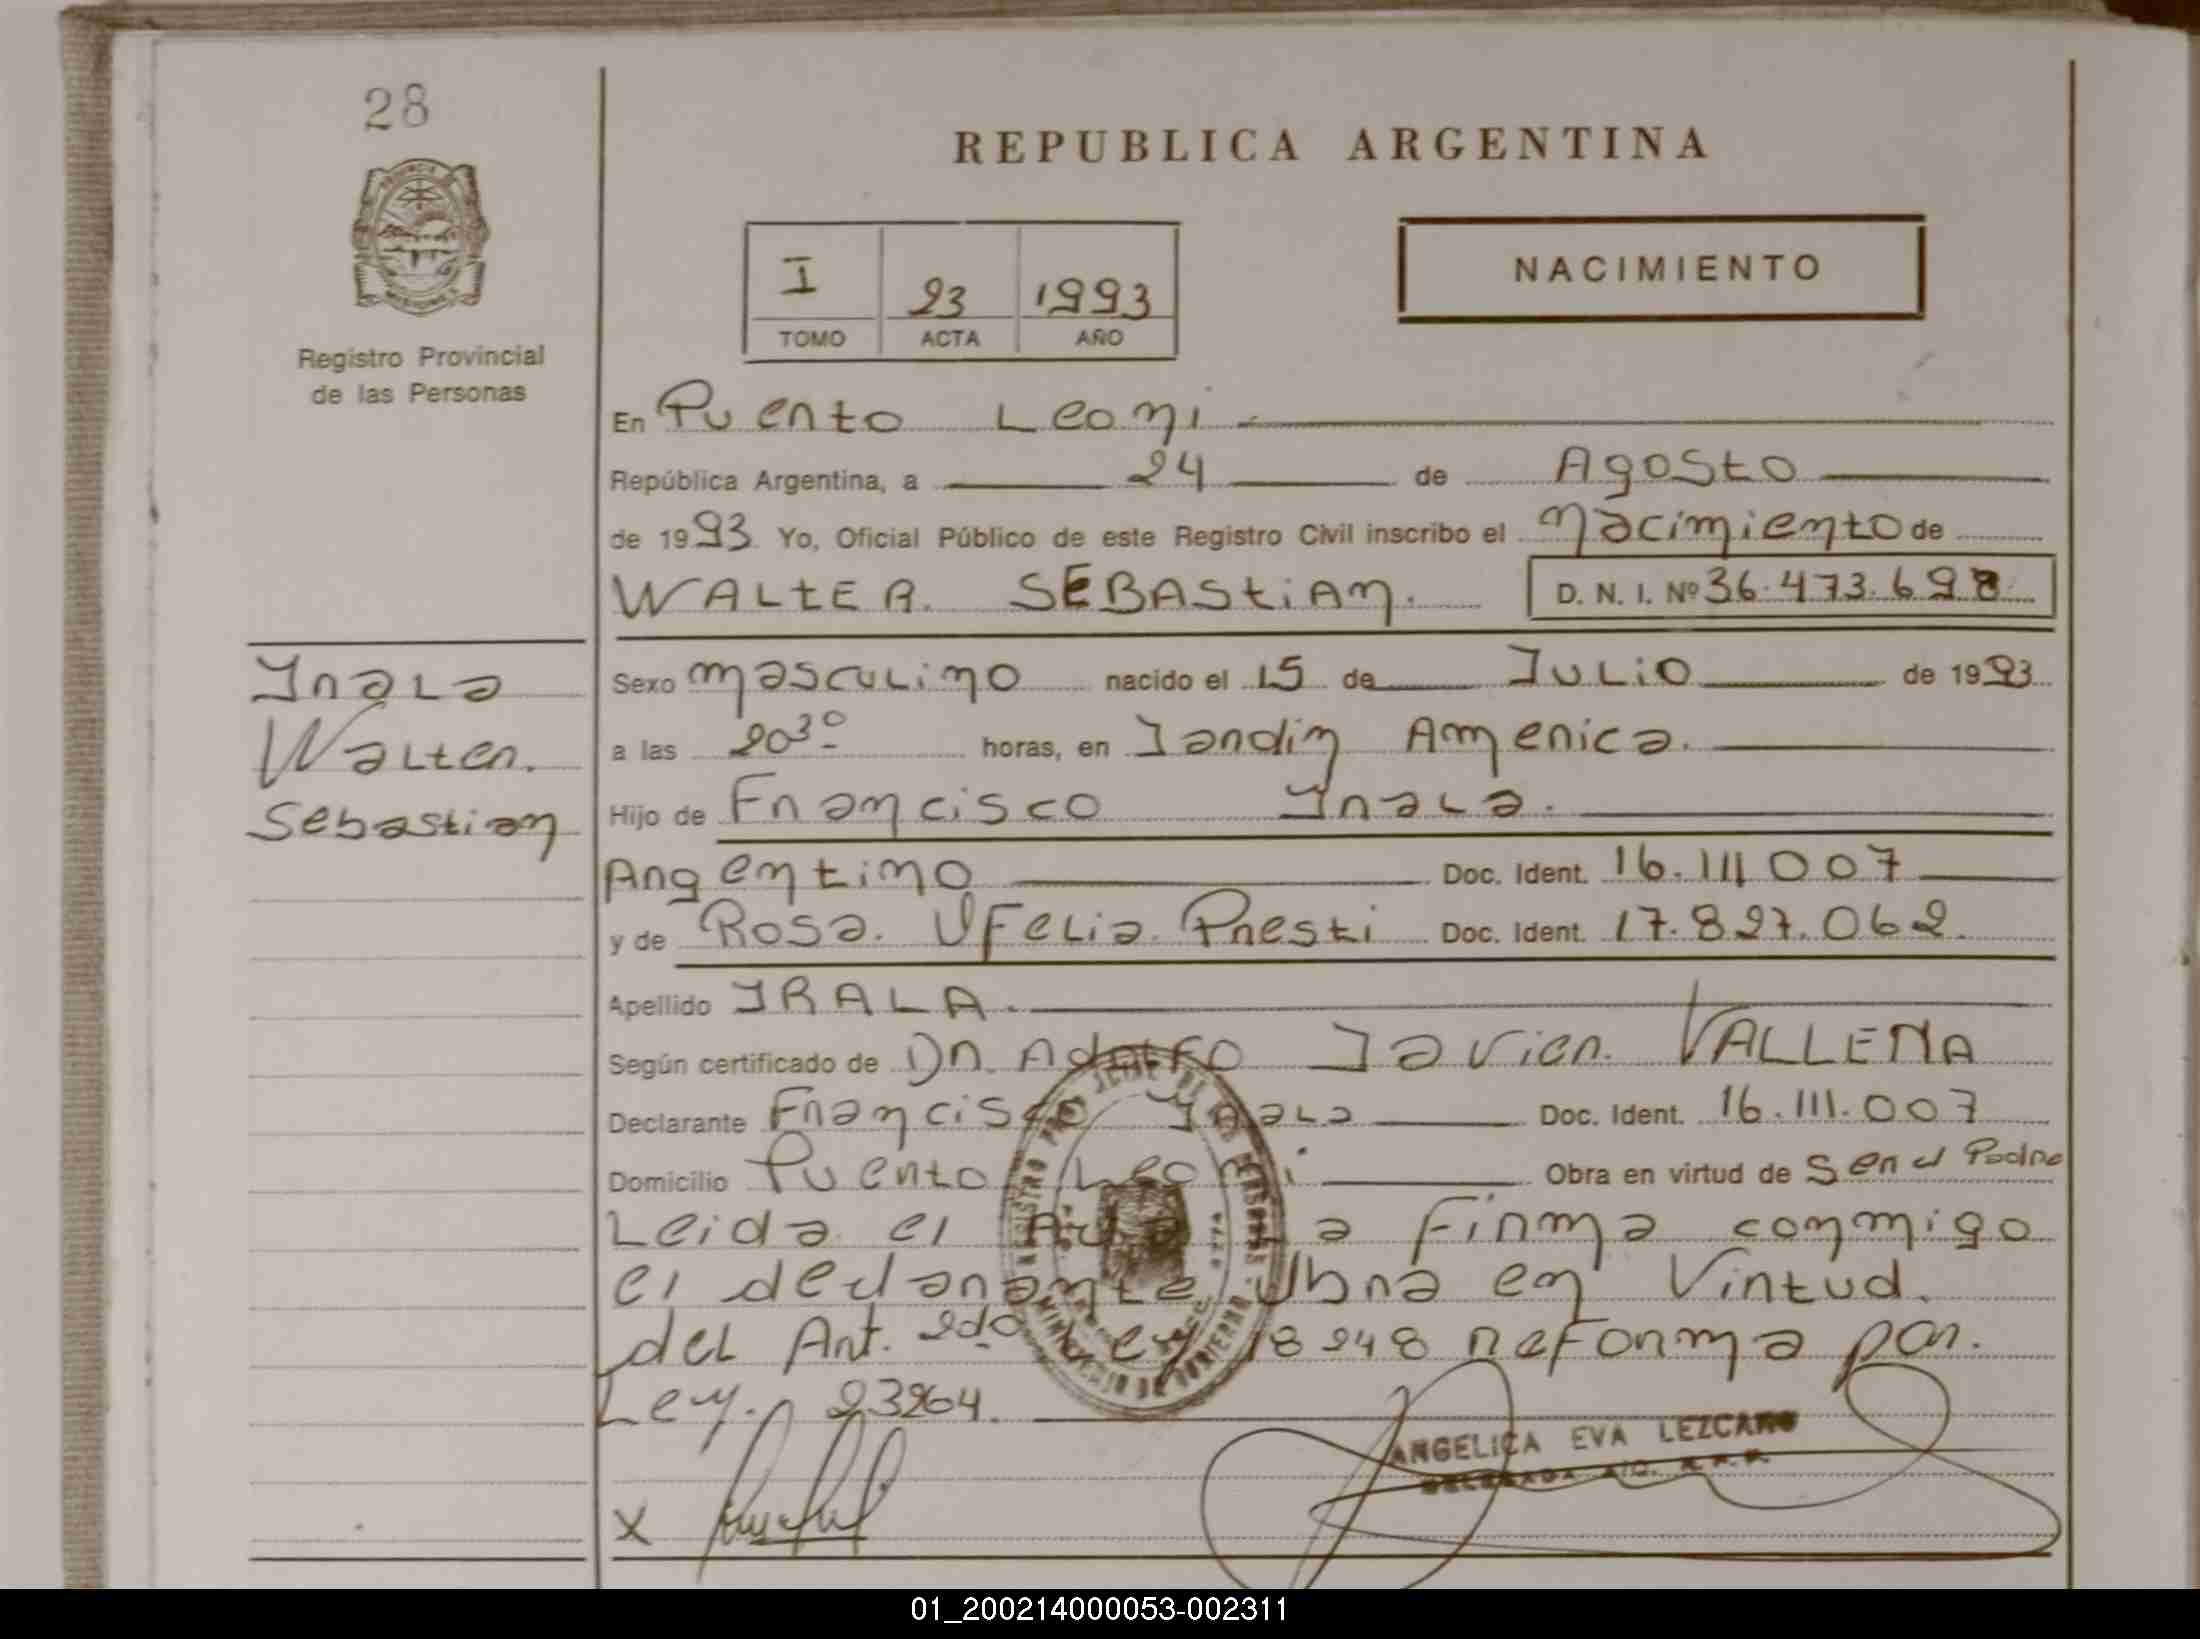 28
REPUBLICA ARGENTINA
I 23 1993
TOMO ACTA AÑO
NACIMIENTO
Registro Provincial
de las Personas
En Puerto Leoni
República Argentina, a 24 de Agosto
de 1993 Yo, Oficial Público de este Registro Civil inscribo el nacimiento de
WALTER. SEBAStiAn. D. N. I. Nº 36.473.698
Irala
Walter.
Sebastian
Sexo masculino nacido el 15 de JULio de 1993
a las 20³⁰ horas, en Jardin America.
Hijo de Francisco Irala.
Argentino Doc. Ident. 16.111007
y de Rosa. OFelia Presti Doc. Ident. 17.827.062.
Apellido IRALA.
Según certificado de Dr. AdolFo Javier. VALLEJIA
Declarante Francisco Irala Doc. Ident. 16.111.007
Domicilio Puerto Leoni Obra en virtud de Ser el Padre
Leida el Acta La Firma conmigo
el declarante Obra en Virtud.
del Art. 2do Ley 18248 reForma por.
Ley. 23264.
ANGELICA EVA LEZCANO
X
REGISTRO PROVINCIAL DE LAS PERSONAS
MINISTERIO DE GOBIERNO
01_200214000053-002311